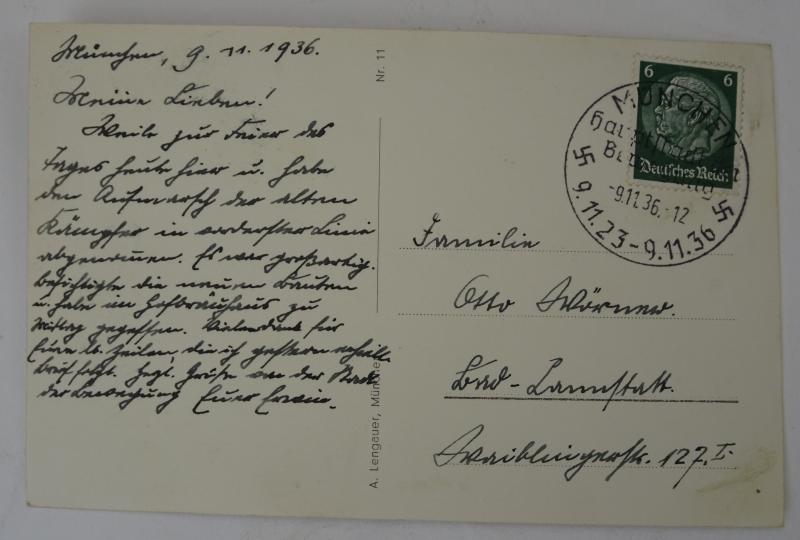 München, 9. 11. 1936.
Meine Lieben!
Weile zur Feier des
Tages heute hier u. habe
den Aufmarsch der alten
Kämpfer in vorderster Linie
abgenommen. Es war großartig.
Besichtigte die neuen Bauten
u. habe im Hofbräuhaus zu
Mittag gegessen. Vielen Dank für
Eure lb. Zeilen, die ich gestern erhielt
Brief folgt. Hzgl. Grüße von der Stadt
der Bewegung Euer Erwin.
Nr. 11
A. Lengauer, München
6 6
Deutsches Reich
MÜNCHEN
Hauptstadt der
Bewegung
-9.11.36.-12
9.11.23-9.11.36
Familie
Otto Wörner.
Bad-Cannstatt.
Waiblingerstr. 127.I.